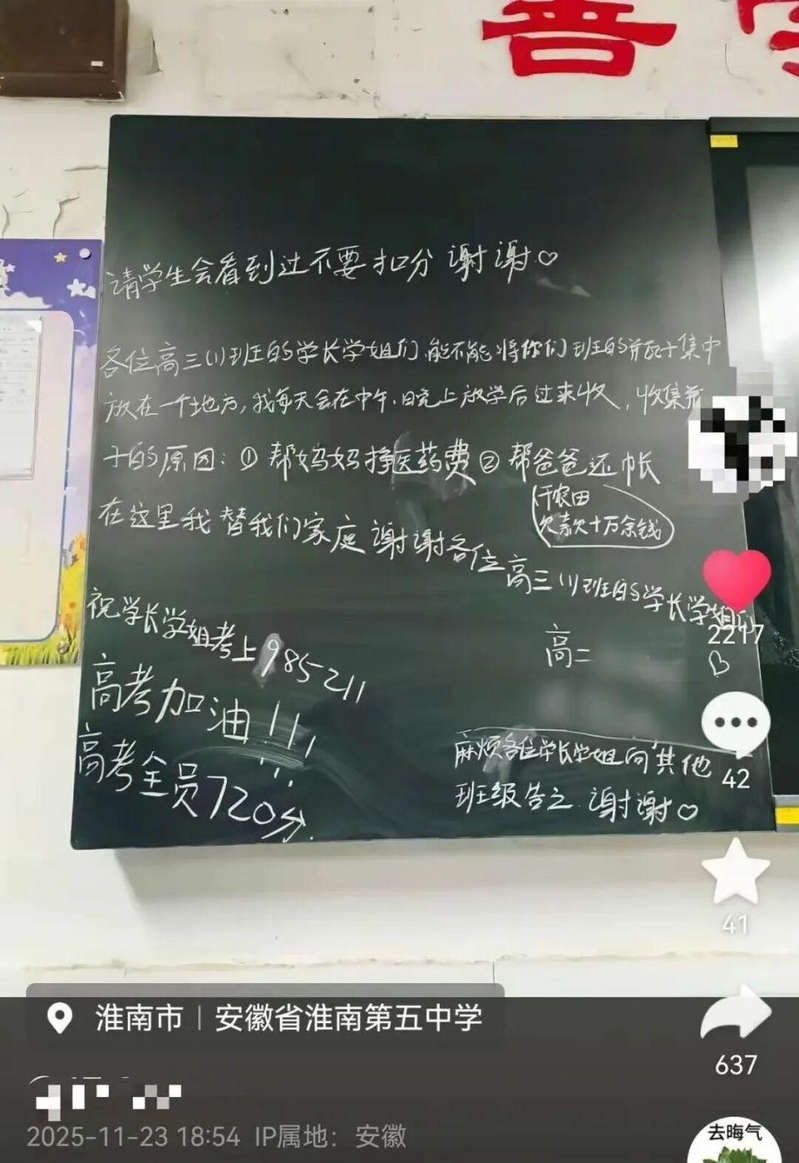 善
请学生会看到过不要扣分 谢谢♡
各位高三(1)班的学长学姐们,能不能将你们班的并瓦子集中
放在一个地方,我每天会在中午.日晚上放学后过来收,收集并
子的原因:① 帮妈妈挣医药费② 帮爸爸还帐
干农田
欠款欠十万余钱
在这里我替我们家庭 谢谢各位高三(1)班的学长学姐
高二
祝学长学姐考上985211
高考加油!!!
高考全员720分.
麻烦各位学长学姐向其他
班级告之.谢谢♡
2247
42
41
637
淮南市|安徽省淮南第五中学
2025-11-23 18:54 IP属地:安徽
去晦气